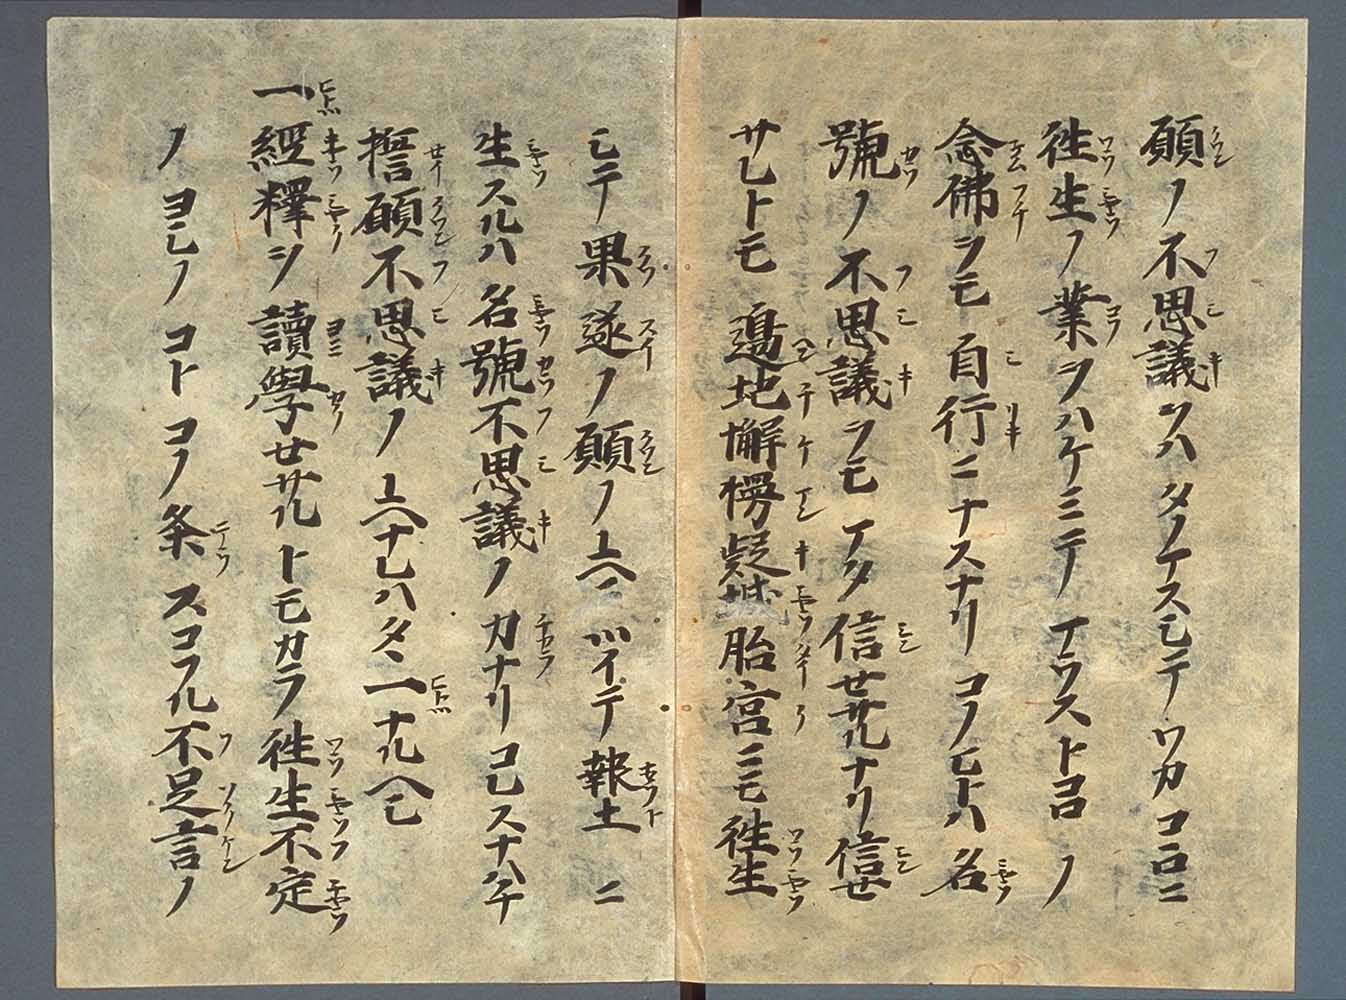 願ノ不思議ヲハタノマスシテワカコヽロニ
往生ノ業ヲハケミテマウストコロノ
念佛ヲモ自行ニナスナリコノヒトハ名
號ノ不思議ヲモマタ信セサルナリ信セ
サレトモ邊地懈慢疑城胎宮ニモ往生
シテ果遂ノ願ノユヘニツイテ報土ニ
生スルハ名號不思議ノ力ナリコレスナハチ
誓願不思議ノユヘナレハタヽ一ナルヘシ
一經釋ヲ讀學セサルトモカラ往生不定
ノヨシノコトコノ条スコフル不足言ノ